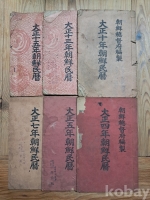 大正十五年朝鮮民曆
大正十三年朝鮮民曆
朝鮮總督府編製
大正十年朝鮮民曆
大正七年朝鮮民曆
大正五年朝鮮民曆
朝鮮總督府編製
大正四年朝鮮民曆
kobay